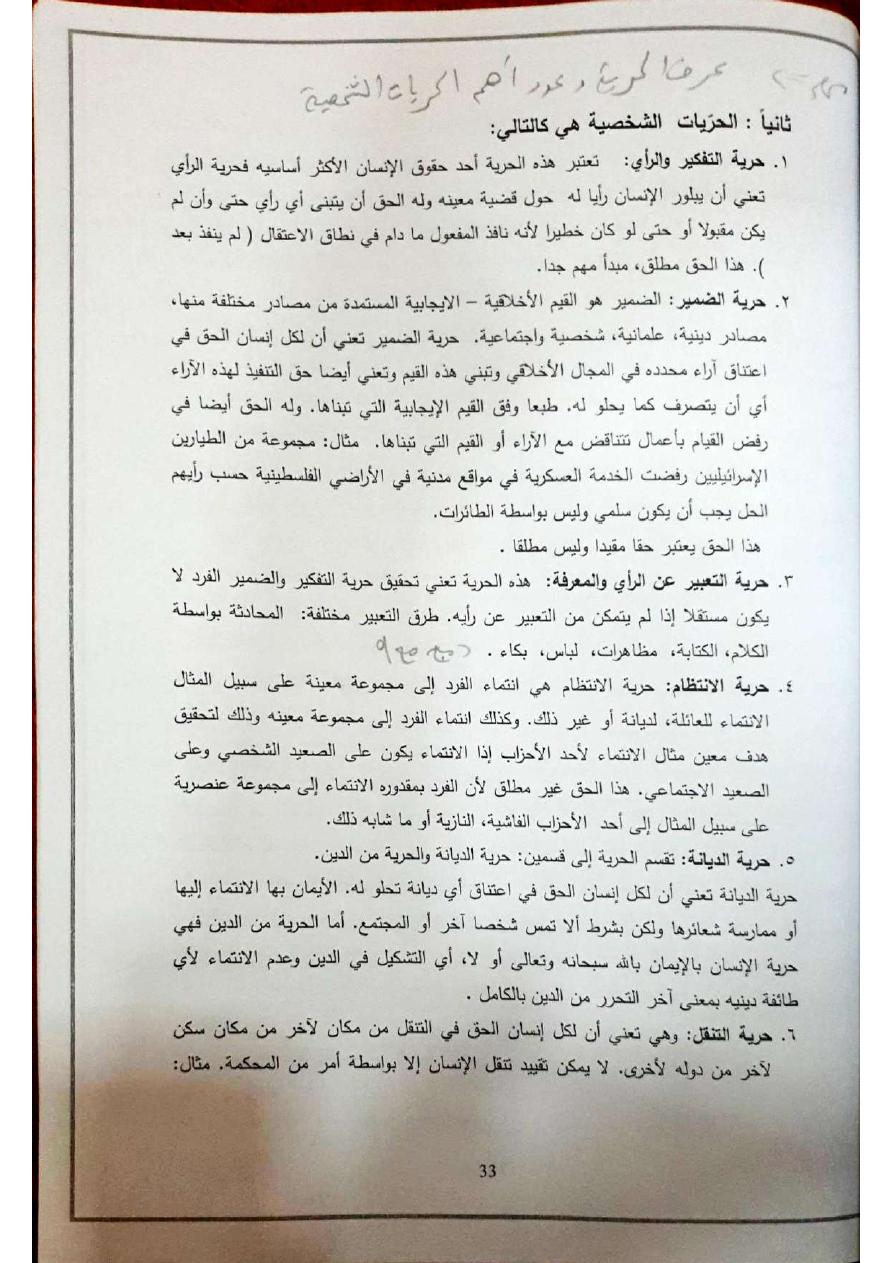 عرف الحرية وعدد أهم الحريات الشخصية
ثانياً : الحرّيات الشخصية هي كالتالي:
١. حرية التفكير والرأي: تعتبر هذه الحرية أحد حقوق الإنسان الأكثر أساسيه فحرية الرأي
تعني أن يبلور الإنسان رأيا له حول قضية معينه وله الحق أن يتبنى أي رأي حتى وأن لم
يكن مقبولا أو حتى لو كان خطيرا لأنه نافذ المفعول ما دام في نطاق الاعتقال ( لم ينفذ بعد
). هذا الحق مطلق، مبدأ مهم جدا.
٢. حرية الضمير: الضمير هو القيم الأخلاقية – الايجابية المستمدة من مصادر مختلفة منها،
مصادر دينية، علمانية، شخصية واجتماعية. حرية الضمير تعني أن لكل إنسان الحق في
اعتناق آراء محدده في المجال الأخلاقي وتبني هذه القيم وتعني أيضا حق التنفيذ لهذه الآراء
أي أن يتصرف كما يحلو له. طبعا وفق القيم الإيجابية التي تبناها. وله الحق أيضا في
رفض القيام بأعمال تتناقض مع الآراء أو القيم التي تبناها. مثال: مجموعة من الطيارين
الإسرائيليين رفضت الخدمة العسكرية في مواقع مدنية في الأراضي الفلسطينية حسب رأيهم
الحل يجب أن يكون سلمي وليس بواسطة الطائرات.
هذا الحق يعتبر حقا مقيدا وليس مطلقا .
٣. حرية التعبير عن الرأي والمعرفة: هذه الحرية تعني تحقيق حرية التفكير والضمير الفرد لا
يكون مستقلا إذا لم يتمكن من التعبير عن رأيه. طرق التعبير مختلفة: المحادثة بواسطة
الكلام، الكتابة، مظاهرات، لباس، بكاء .
٤. حرية الانتظام: حرية الانتظام هي انتماء الفرد إلى مجموعة معينة على سبيل المثال
الانتماء للعائلة، لديانة أو غير ذلك. وكذلك انتماء الفرد إلى مجموعة معينه وذلك لتحقيق
هدف معين مثال الانتماء لأحد الأحزاب إذا الانتماء يكون على الصعيد الشخصي وعلى
الصعيد الاجتماعي. هذا الحق غير مطلق لأن الفرد بمقدوره الانتماء إلى مجموعة عنصرية
على سبيل المثال إلى أحد الأحزاب الفاشية، النازية أو ما شابه ذلك.
٥. حرية الديانة: تقسم الحرية إلى قسمين: حرية الديانة والحرية من الدين.
حرية الديانة تعني أن لكل إنسان الحق في اعتناق أي ديانة تحلو له. الأيمان بها الانتماء إليها
أو ممارسة شعائرها ولكن بشرط ألا تمس شخصا آخر أو المجتمع. أما الحرية من الدين فهي
حرية الإنسان بالإيمان بالله سبحانه وتعالى أو لا، أي التشكيل في الدين وعدم الانتماء لأي
طائفة دينيه بمعنى آخر التحرر من الدين بالكامل .
٦. حرية التنقل: وهي تعني أن لكل إنسان الحق في التنقل من مكان لآخر من مكان سكن
لآخر من دوله لأخرى. لا يمكن تقييد تنقل الإنسان إلا بواسطة أمر من المحكمة. مثال:
33